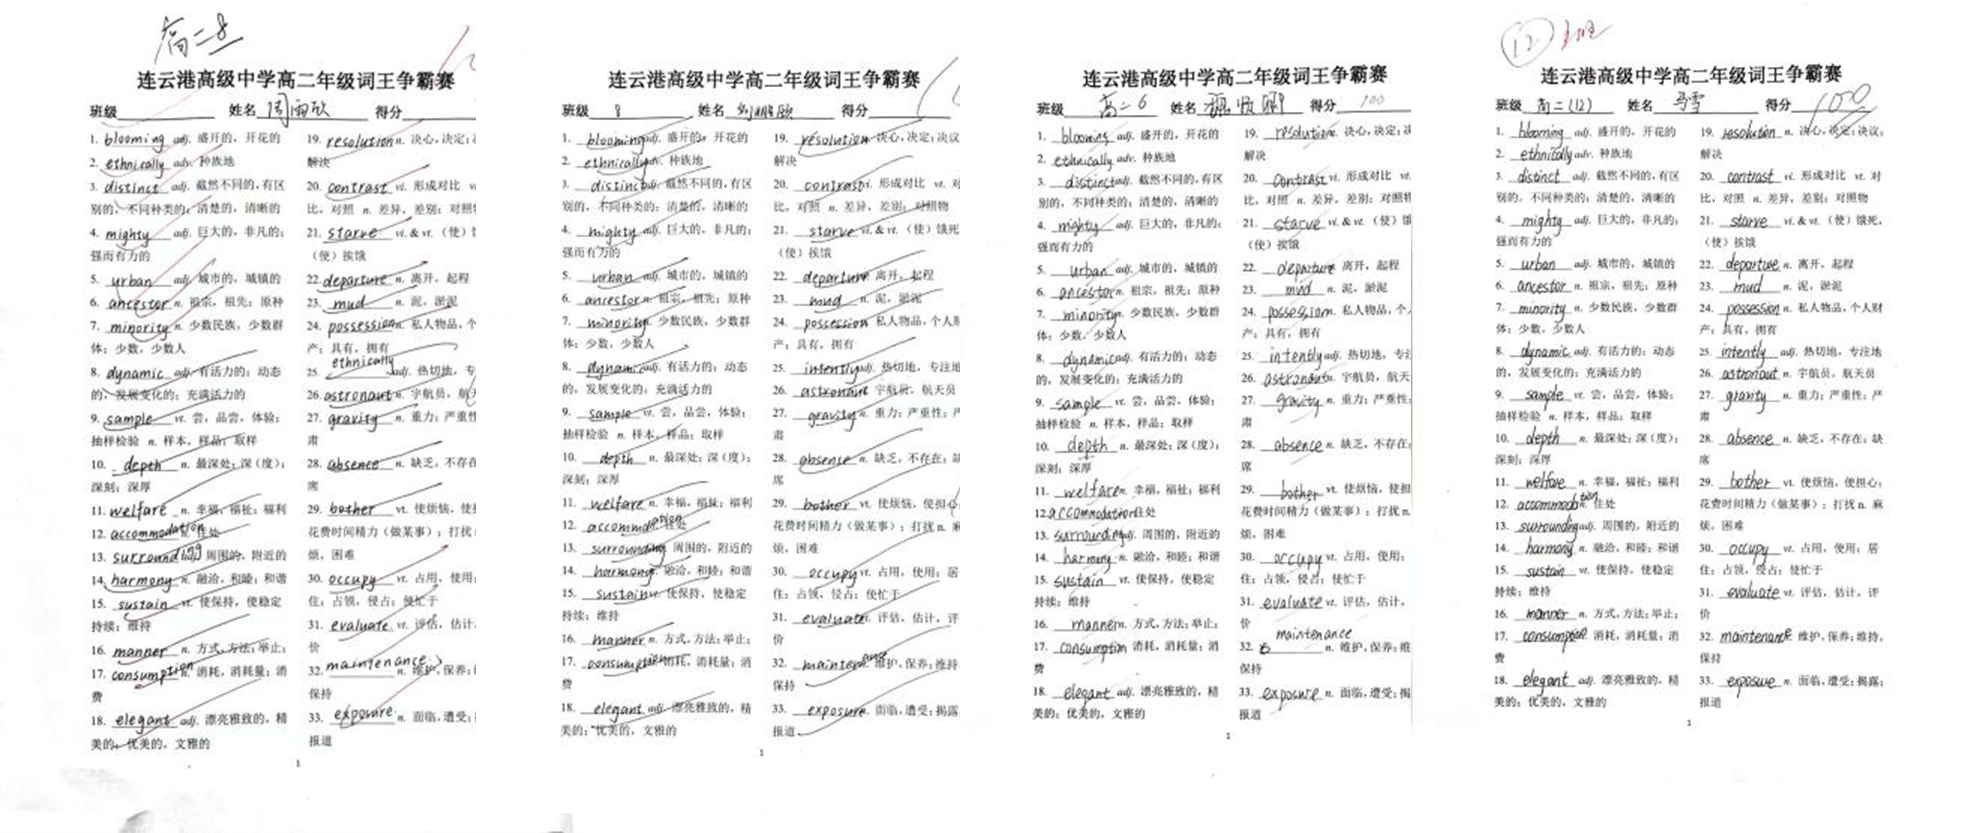 高二8
连云港高级中学高二年级词王争霸赛
班级 姓名 周雨欣 得分
1. blooming adj. 盛开的，开花的
2. ethnically adv. 种族地
3. distinct adj. 截然不同的，有区
别的，不同种类的；清楚的，清晰的
4. mighty adj. 巨大的，非凡的；
强而有力的
5. urban adj. 城市的，城镇的
6. ancestor n. 祖宗，祖先；原种
7. minority n. 少数民族，少数群
体；少数，少数人
8. dynamic adj. 有活力的；动态
的，发展变化的；充满活力的
9. sample vt. 尝，品尝，体验；
抽样检验 n. 样本，样品；取样
10. depth n. 最深处；深（度）；
深刻；深厚
11. welfare n. 幸福，福祉；福利
12. accommodation n. 住处
13. surrounding 周围的，附近的
14. harmony n. 融洽，和睦；和谐
15. sustain vt. 使保持，使稳定
持续；维持
16. manner n. 方式，方法；举止；
17. consumption n. 消耗，消耗量；消
费
18. elegant adj. 漂亮雅致的，精
美的；优美的，文雅的
19. resolution n. 决心，决定；
解决
20. contrast vi. 形成对比 vt.
比，对照 n. 差异，差别；对照
21. starve vi. & vt.（使）
（使）挨饿
22. departure n. 离开，起程
23. mud n. 泥，淤泥
24. possession n. 私人物品，个
产；具有，拥有
25. ethnically adj. 热切地，专
26. astronaut n. 宇航员，航
27. gravity n. 重力；严重性
肃
28. absence n. 缺乏，不存在
席
29. bother vt. 使烦恼，使
花费时间精力（做某事）；打扰
烦，困难
30. occupy vt. 占用，使用；
住；占领，侵占；使忙于
31. evaluate vt. 评估，估计
价
32. maintenance n. 维护，保养；
保持
33. exposure n. 面临，遭受；
报道
1
连云港高级中学高二年级词王争霸赛
班级 8 姓名 得分
1. blooming adj. 盛开的，开花的
2. ethnically 种族地
3. distinct adj. 截然不同的，有区
别的，不同种类的；清楚的，清晰的
4. mighty adj. 巨大的，非凡的；
强而有力的
5. urban adj. 城市的，城镇的
6. ancestor n. 祖宗，祖先；原种
7. minority n. 少数民族，少数群
体；少数，少数人
8. dynamic adj. 有活力的；动态
的，发展变化的；充满活力的
9. sample vt. 尝，品尝，体验；
抽样检验 n. 样本，样品；取样
10. depth n. 最深处；深（度）；
深刻；深厚
11. welfare n. 幸福，福祉；福利
12. accommodation 住处
13. surrounding 周围的，附近的
14. harmony 融洽，和睦；和谐
15. sustain vt. 使保持，使稳定
持续；维持
16. manner n. 方式，方法；举止；
17. consumption 消耗，消耗量；消
费
18. elegant adj. 漂亮雅致的，精
美的；优美的，文雅的
19. resolution 决心，决定；决议
解决
20. contrast vi. 形成对比 vt. 对
比，对照 n. 差异，差别；对照物
21. starve vi. & vt.（使）饿死
（使）挨饿
22. departure 离开，起程
23. mud n. 泥，淤泥
24. possession 私人物品，个人财
产；具有，拥有
25. intently adj. 热切地，专注地
26. astronaut 宇航员，航天员
27. gravity n. 重力；严重性；严
肃
28. absence n. 缺乏，不存在；缺
席
29. bother vt. 使烦恼，使担心
花费时间精力（做某事）；打扰 n. 麻
烦，困难
30. occupy vt. 占用，使用；居
住；占领，侵占；使忙于
31. evaluate vt. 评估，估计，评
价
32. maintenance 维护，保养；维持
保持
33. exposure 面临，遭受；揭露
报道
1
连云港高级中学高二年级词王争霸赛
班级 高二6 姓名 得分 100
1. blooming adj. 盛开的，开花的
2. ethnically adv. 种族地
3. distinct adj. 截然不同的，有区
别的，不同种类的；清楚的，清晰的
4. mighty adj. 巨大的，非凡的；
强而有力的
5. urban adj. 城市的，城镇的
6. ancestor n. 祖宗，祖先；原种
7. minority n. 少数民族，少数群
体；少数，少数人
8. dynamic adj. 有活力的；动态
的，发展变化的；充满活力的
9. sample vt. 尝，品尝，体验；
抽样检验 n. 样本，样品；取样
10. depth n. 最深处；深（度）；
深刻；深厚
11. welfare n. 幸福，福祉；福利
12. accommodation 住处
13. surrounding adj. 周围的，附近的
14. harmony n. 融洽，和睦；和谐
15. sustain vt. 使保持，使稳定
持续；维持
16. manner n. 方式，方法；举止；
17. consumption 消耗，消耗量；消
费
18. elegant adj. 漂亮雅致的，精
美的；优美的，文雅的
19. resolution n. 决心，决定；
解决
20. contrast vi. 形成对比 vt. 对
比，对照 n. 差异，差别；对照物
21. starve vi. & vt.（使）饿
（使）挨饿
22. departure 离开，起程
23. mud n. 泥，淤泥
24. possession n. 私人物品，个人
产；具有，拥有
25. intently adj. 热切地，专注
26. astronaut n. 宇航员，航天
27. gravity n. 重力；严重性；
肃
28. absence n. 缺乏，不存在；
席
29. bother vt. 使烦恼，使担
花费时间精力（做某事）；打扰 n.
烦，困难
30. occupy vt. 占用，使用；
住；占领，侵占；使忙于
31. evaluate vt. 评估，估计，
价
32. maintenance n. 维护，保养；维
保持
33. exposure n. 面临，遭受；揭
报道
1
12 班
连云港高级中学高二年级词王争霸赛
班级 高二(12) 姓名 马雪 得分 100
1. blooming adj. 盛开的，开花的
2. ethnically adv. 种族地
3. distinct adj. 截然不同的，有区
别的，不同种类的；清楚的，清晰的
4. mighty adj. 巨大的，非凡的；
强而有力的
5. urban adj. 城市的，城镇的
6. ancestor n. 祖宗，祖先；原种
7. minority n. 少数民族，少数群
体；少数，少数人
8. dynamic adj. 有活力的；动态
的，发展变化的；充满活力的
9. sample vt. 尝，品尝，体验；
抽样检验 n. 样本，样品；取样
10. depth n. 最深处；深（度）；
深刻；深厚
11. welfare n. 幸福，福祉；福利
12. accommodation n. 住处
13. surrounding adj. 周围的，附近的
14. harmony n. 融洽，和睦；和谐
15. sustain vt. 使保持，使稳定
持续；维持
16. manner n. 方式，方法；举止；
17. consumption 消耗，消耗量；消
费
18. elegant adj. 漂亮雅致的，精
美的；优美的，文雅的
19. resolution n. 决心，决定；决议；
解决
20. contrast vi. 形成对比 vt. 对
比，对照 n. 差异，差别；对照物
21. starve vi. & vt.（使）饿死，
（使）挨饿
22. departure n. 离开，起程
23. mud n. 泥，淤泥
24. possession n. 私人物品，个人财
产；具有，拥有
25. intently adj. 热切地，专注地
26. astronaut n. 宇航员，航天员
27. gravity n. 重力；严重性；严
肃
28. absence n. 缺乏，不存在；缺
席
29. bother vt. 使烦恼，使担心；
花费时间精力（做某事）；打扰 n. 麻
烦，困难
30. occupy vt. 占用，使用；居
住；占领，侵占；使忙于
31. evaluate vt. 评估，估计，评
价
32. maintenance 维护，保养；维持，
保持
33. exposure n. 面临，遭受；揭露；
报道
1